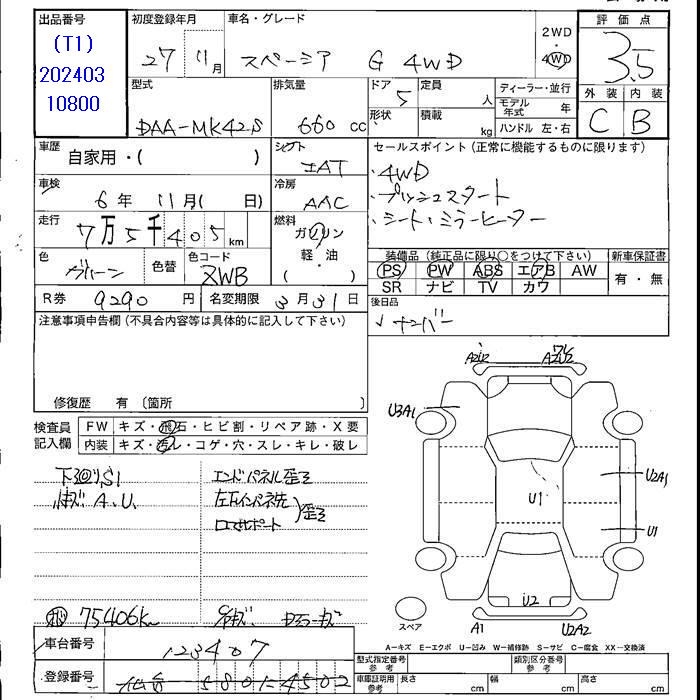 出品番号
(T1)
202403
10800
初度登録年月
27 11月
車名・グレード
スペーシア G 4WD
2WD
4WD
評価点
3.5
外装 内装
C B
型式
DAA-MK42S
排気量
660 cc
ドア
5
形状
定員
人
積載
kg
ディーラー・並行
モデル年式 年
ハンドル 左・右
車歴
自家用・( )
シフト
IAT
セールスポイント(正常に機能するものに限ります)
・4WD
・プッシュスタート
・シート・ミラーヒーター
車検
6年 11月( 日)
冷房
AAC
走行
7万5千405 km
燃料
ガソリン
軽・油
( )
色
グリーン
色替
色コード
ZWB
装備品(純正品に限り○をつけて下さい)
PS PW ABS エアB AW
SR ナビ TV カワ
新車保証書
有・無
R券 9290 円
名変期限 3月31日
後日品
ナンバー
注意事項申告欄(不具合内容等は具体的に記入して下さい)
修復歴 有〔箇所 〕
検査員
記入欄
FW キズ・飛石・ヒビ割・リペア跡・X要
内装 キズ・汚れ・コゲ・穴・スレ・キレ・破レ
下廻りS1
エンドパネル歪ミ
A.U.
75406k
A2U2
U3A1
U2A1
U1
U1
U2
A1
U2A2
スペア
A−キズ E−エクボ U−凹み W−補修跡 S−サビ C−腐食 XX−交換済
車台番号
123407
登録番号
仙台 580 に 4502
型式指定番号
参考
類別区分番号
参考
車庫証明用
参考
長さ cm
幅 cm
高さ cm